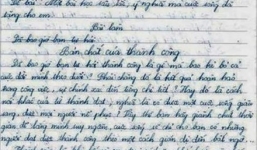 Đề bài: Một bài học sâu sắc, ý nghĩa mà cuộc sống đã
tặng cho em
Bài làm
Đã bao giờ bạn tự hỏi
Bản chất của thành công
Đã bao giờ bạn tự hỏi thành công là gì mà bao kẻ bỏ cả
cuộc đời mình theo đuổi? Phải chăng đó là kết quả hoàn hảo
trong công việc, sự chính xác đến từng chi tiết? Hay đó là cách
nói khác của từ thành đạt, nghĩa là có được một cuộc sống giàu
sang, được mọi người nể phục? Vậy thì bạn hãy giành chút thời
gian để lặng mình suy ngẫm, cuộc sống sẽ chỉ cho bạn có những
người đạt được thành công theo một cách giản dị đến bất ngờ